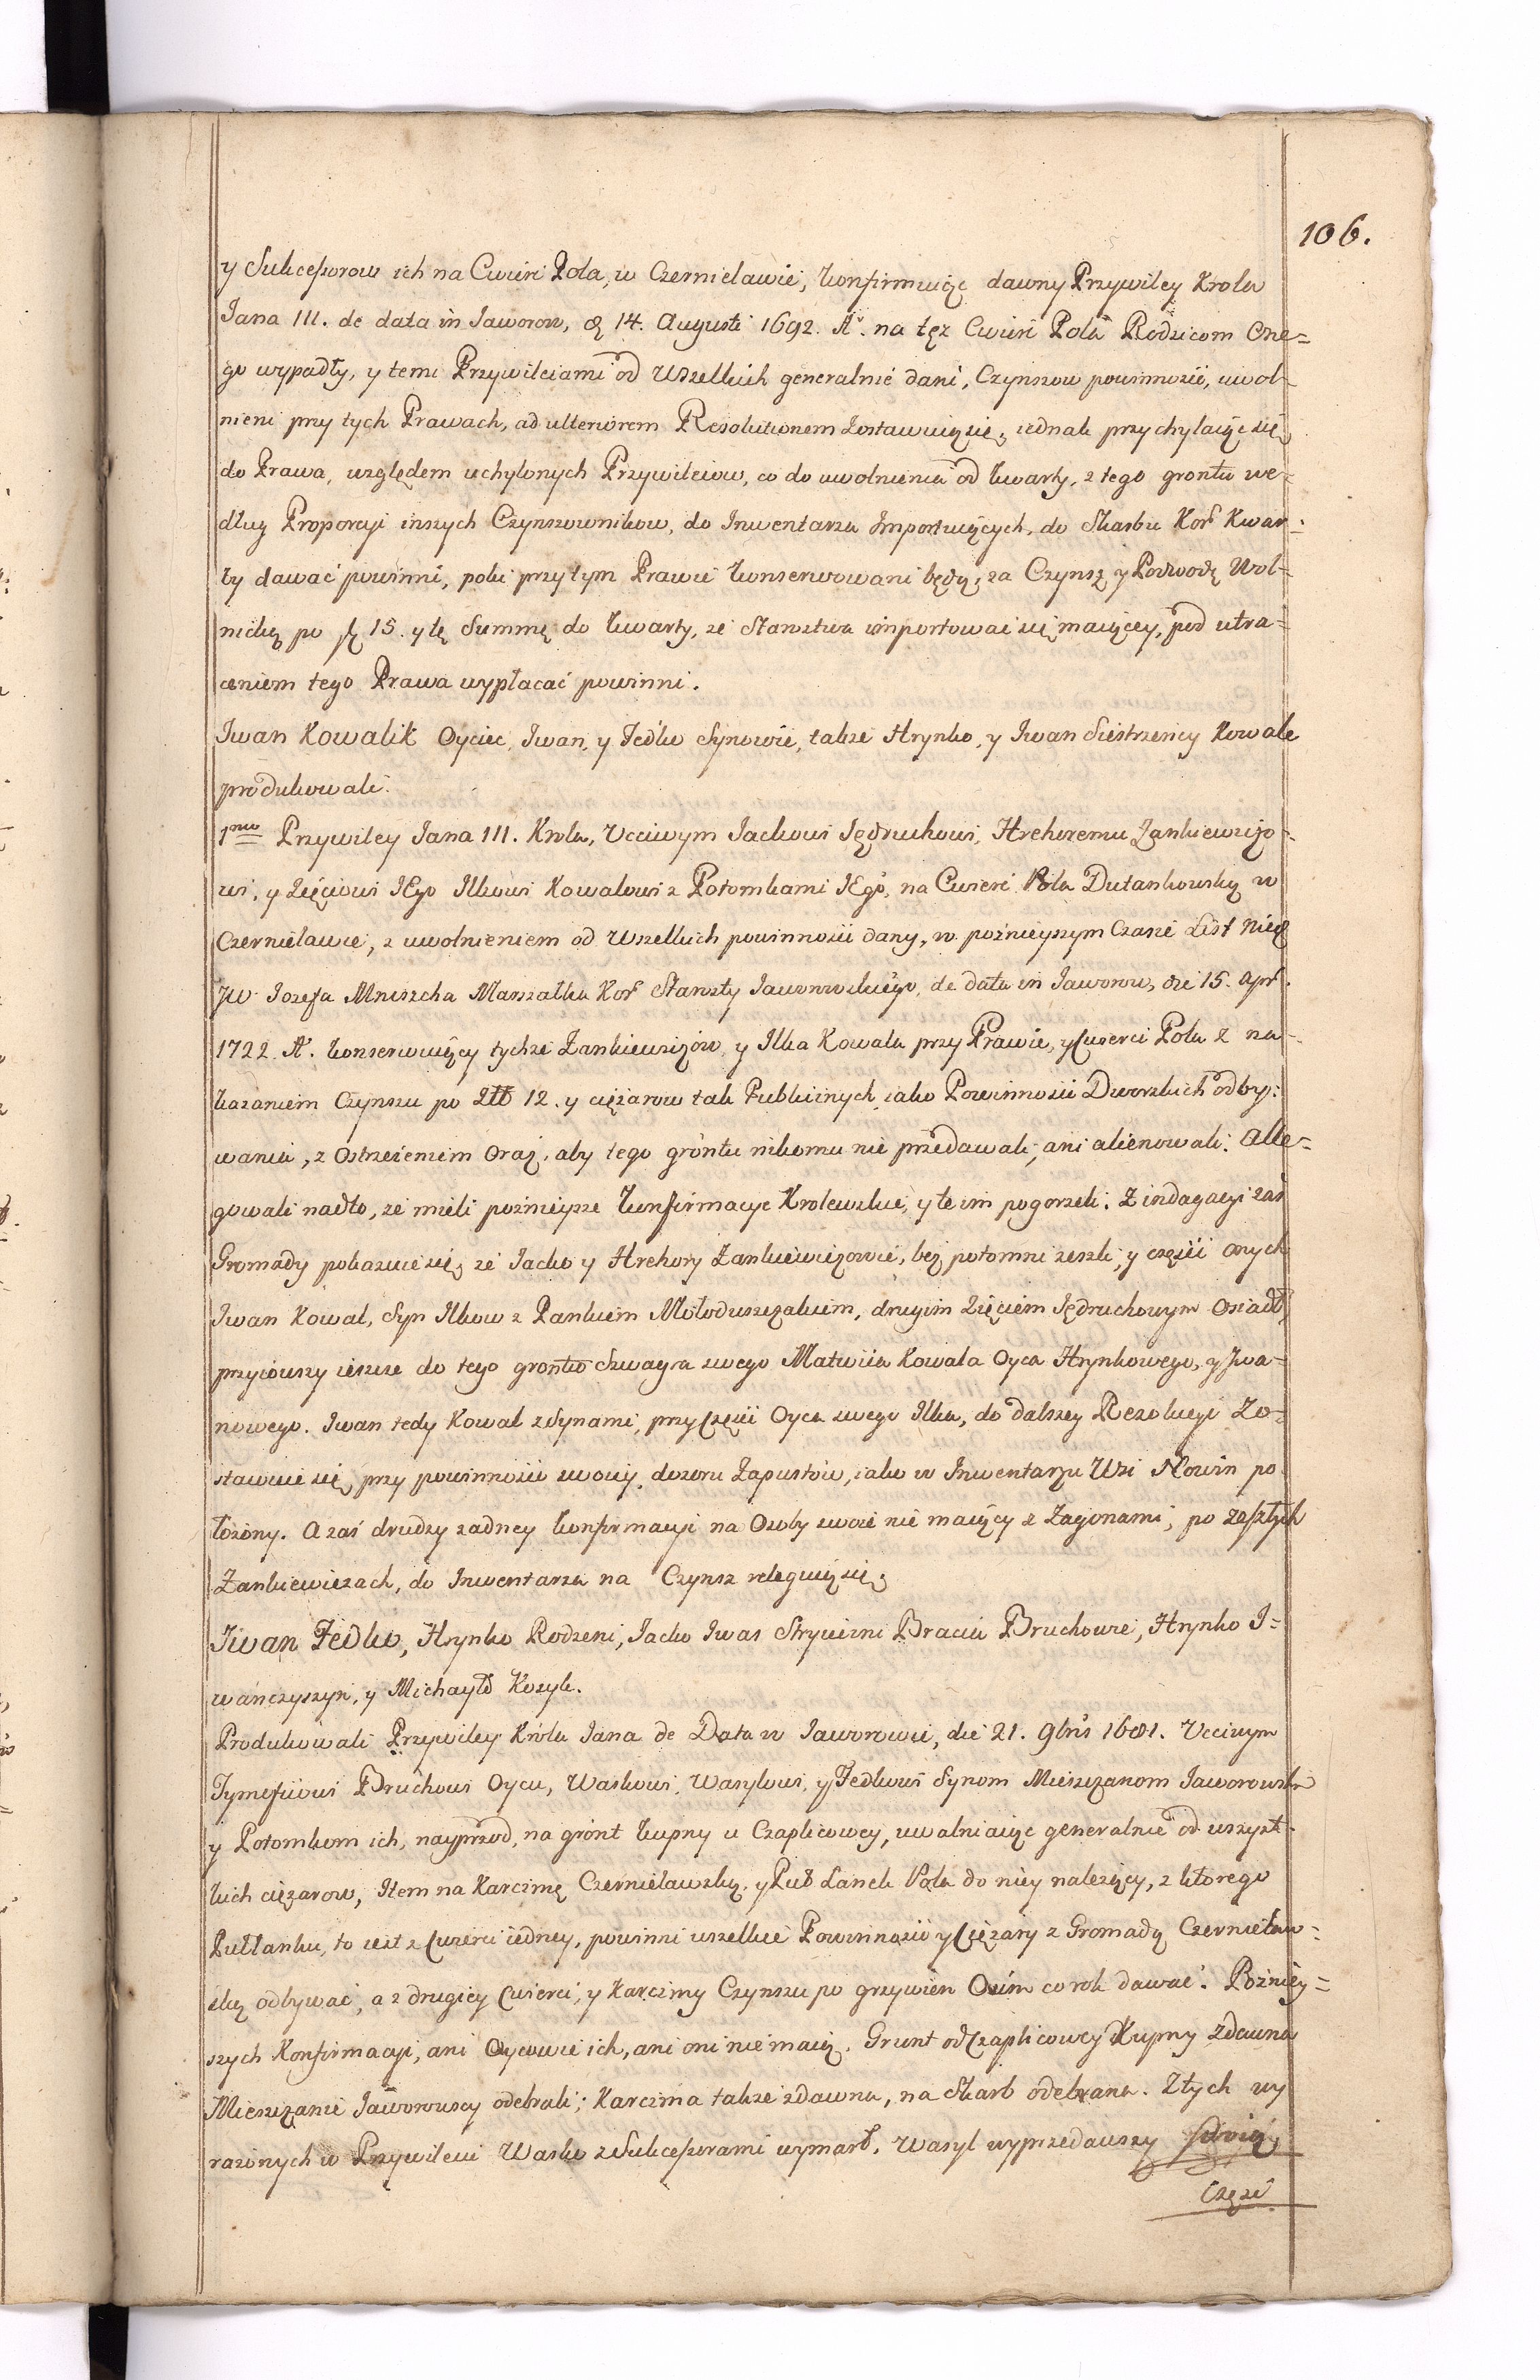 106.
y Sukcessorow ich na Cwierć Pola, w Czernielawie, konfirmuiąc dawny Przywiley Krola
Jana III. de data in Jaworow, d. 14. Augusti 1692. A°. na tęż Cwierć Pola Rodzicom One=
go wypadły, y temi Przywileiami od Wszelkich generalnie dani, Czynszow powinnosci, uwol=
nieni przy tych Prawach, ad ulteriorem Resolutionem Zostawuią się, iednak przychylaiąc się
do Prawa, względem uchylonych Przywileiow, co do uwolnienia od kwarty, z tego grontu we=
dług Proporcyi inszych Czynszownikow, do Inwentarza Importuiących, do Skarbu Kor Kwar=
ty dawać powinni, poki przy tym Prawie konserwowani będą, za Czynsz y Podwodę Wol=
nicką po fl 15. y tę Summę do kwarty, ze Starostwa importować się maiącey, pod utra=
ceniem tego Prawa wypłacać powinni.
Iwan Kowalik Oyciec, Iwan, y Fedko Synowie, także Hrynko, y Iwan Siestrzency Kowale
produkowali.
1mo Przywiley Jana III. Krola, Uczciwym Jackowi Jędruchowi, Hrehoremu Zankiewiczo=
wi, y Zięciowi JEgo Ilkowi Kowalowi z Potomkami JEgo, na Cwierć Pola Dutankowską w
Czernielawie, z uwolnieniem od Wszelkich powinnosci dany, w poźnieyszym Czasie List
JW Jozefa Mniszcha Marszałka Kor Starosty Jaworowskiego, de data in Jaworow, die 15. Apr.
1722 A°. konserwuiący tychże Zankiewiczow, y Ilka Kowala przy Prawie, y Cwierci Pola z na=
kazaniem Czynszu po Zł 12. y ciężarow tak Publicznych iako Powinnosci Dworskich odby=
wania, z Ostrzeżeniem Oraz, aby tego grontu nikomu nie przedawali, ani alienowali. Alle=
gowali nadto, że mieli poźnieysze konfirmacye Krolewskie, y te im pogorzeli. Z indagacyi zaś
Gromady pokazuie się, że Jacko y Hrehory Zankiewiczowie, bez potomni zeszli, y części onych
Iwan Kowal, Syn Ilkow z Pankiem Mołoduszczakiem, drugim Zięciem Jędruchowym Osiadł,
przyiowszy ieszcze do tego grontu Szwagra swego Matwiia Kowala Oyca Hrynkowego, y Iwa=
nowego. Iwan tedy Kowal z Synami, przy Części Oyca swego Ilka, do dalszey Rezolucyi Zo=
stawuie się, przy powinnosci swoiey dozoru Zapustow, iako w Inwentarzu Wsi Nowin po
łożony. A zaś drudzy żadney konfirmacyi na Osoby swoie nie maiący z Zagonami, po zeszłych
Zankiewiczach, do Inwentarza na Czynsz releguią się.
Iwan Fedko, Hrynko Rodzeni, Jacko Iwas Stryieczni Bracia Bruchowie, Hrynko I=
wanczyszyn, y Michayło Kozyk.
Produkowali Przywiley Króla Jana de Data w Jaworowie, die 21. 9bris 1681. Uczciwym
Tymofiiowi Bruchowi Oycu, Waskowi, Wasylowi, y Fedkowi Synom Mieszczanom Jaworowskm
y Potomkom ich, nayprzod, na gront kupny u Czaplicowey, uwalniaiąc generalnie od wszyst=
kich ciężarow, Item na Karczmę Czernielawską, y Puł Lanek Pola do niey należący, z którego
Pułłanku, to iest z Cwierci iedney, powinni wszelkie Powinnosci y Ciężary z Gromadą Czernielaw=
ską odbywać, a z drugiey Cwierci, y Karczmy Czynszu po grzywien Osim co rok dawać. Poźniey=
szych Konfirmacyi, ani Oycowie ich, ani oni nie maią. Grunt od Czaplicowey Kupny zdawna
Mieszczanie Jaworowscy odebrali; Karczma także zdawna, na Skarb odebrana. Z tych wy
rażonych w Przywileiu Wasko z Sukcessorami wymarł, Wasyl wyprzedawszy swoią
Część